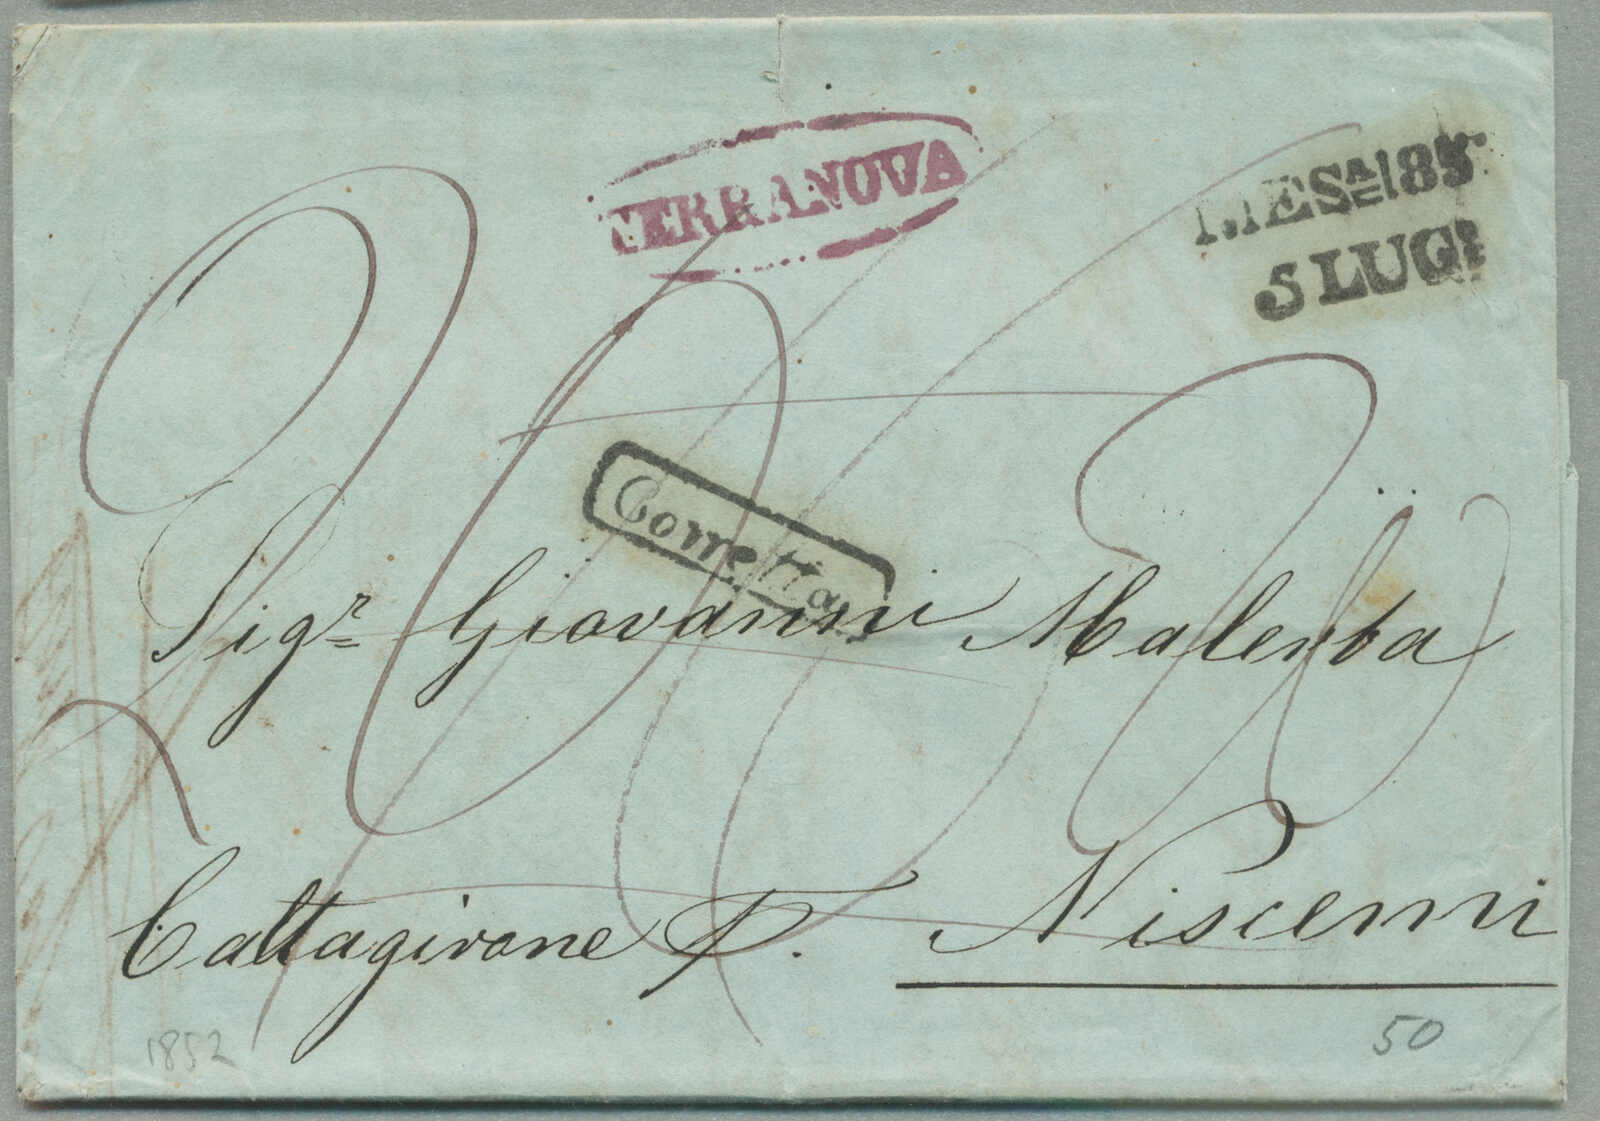 TERRANOVA
MESA 185
5 LUGo
Corretta
Sigr Giovanni Malerba
Caltagirone p. Niscemi
1852
50